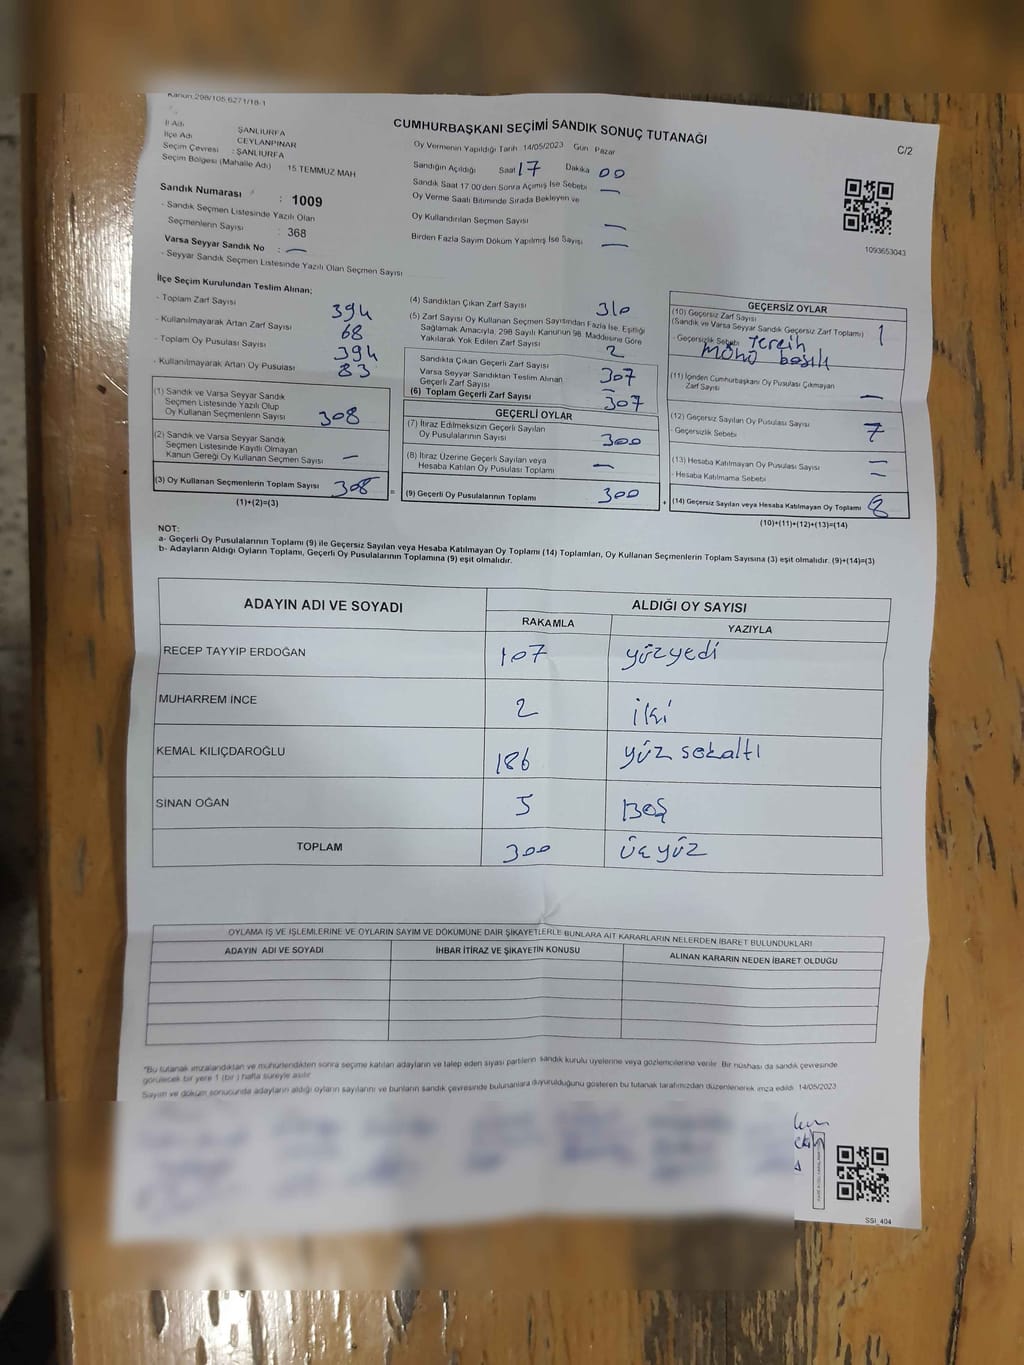 Kanun:298/105,6271/18-1
CUMHURBAŞKANI SEÇİMİ SANDIK SONUÇ TUTANAĞI
C/2
İl Adı ŞANLIURFA
İlçe Adı CEYLANPINAR
Seçim Çevresi : ŞANLIURFA
Seçim Bölgesi (Mahalle Adı) 15 TEMMUZ MAH
Oy Vermenin Yapıldığı Tarih 14/05/2023 Gün Pazar
Sandığın Açıldığı Saat 17 Dakika 00
Sandık Saat 17:00'den Sonra Açımış İse Sebebi —
Oy Verme Saati Bitiminde Sırada Bekleyen ve
Oy Kullandırılan Seçmen Sayısı —
Birden Fazla Sayım Döküm Yapılmış İse Sayısı —
1093653043
Sandık Numarası : 1009
- Sandık Seçmen Listesinde Yazılı Olan
Seçmenlerin Sayısı : 368
Varsa Seyyar Sandık No : —
- Seyyar Sandık Seçmen Listesinde Yazılı Olan Seçmen Sayısı
İlçe Seçim Kurulundan Teslim Alınan;
- Toplam Zarf Sayısı 394
- Kullanılmayarak Artan Zarf Sayısı 68
- Toplam Oy Pusulası Sayısı 394
- Kullanılmayarak Artan Oy Pusulası 83
(1) Sandık ve Varsa Seyyar Sandık
Seçmen Listesinde Yazılı Olup
Oy Kullanan Seçmenlerin Sayısı 308
(2) Sandık ve Varsa Seyyar Sandık
Seçmen Listesinde Kayıtlı Olmayan
Kanun Gereği Oy Kullanan Seçmen Sayısı —
(3) Oy Kullanan Seçmenlerin Toplam Sayısı 308 =
(1)+(2)=(3)
(4) Sandıktan Çıkan Zarf Sayısı 310
(5) Zarf Sayısı Oy Kullanan Seçmen Sayısından Fazla İse, Eşitliği
Sağlamak Amacıyla, 298 Sayılı Kanunun 98. Maddesine Göre
Yakılarak Yok Edilen Zarf Sayısı 2
Sandıkta Çıkan Geçerli Zarf Sayısı 307
Varsa Seyyar Sandıktan Teslim Alınan
Geçerli Zarf Sayısı —
(6) Toplam Geçerli Zarf Sayısı 307
GEÇERLİ OYLAR
(7) İtiraz Edilmeksizin Geçerli Sayılan
Oy Pusulalarının Sayısı 300
(8) İtiraz Üzerine Geçerli Sayılan veya
Hesaba Katılan Oy Pusulası Toplamı —
(9) Geçerli Oy Pusulalarının Toplamı 300 +
GEÇERSİZ OYLAR
(10) Geçersiz Zarf Sayısı
(Sandık ve Varsa Seyyar Sandık Geçersiz Zarf Toplamı) 1
- Geçersizlik Sebebi Tercih
Mührü basılı
(11) İçinden Cumhurbaşkanı Oy Pusulası Çıkmayan
Zarf Sayısı —
(12) Geçersiz Sayılan Oy Pusulası Sayısı 7
- Geçersizlik Sebebi
(13) Hesaba Katılmayan Oy Pusulası Sayısı —
- Hesaba Katılmama Sebebi —
(14) Geçersiz Sayılan veya Hesaba Katılmayan Oy Toplamı 8
(10)+(11)+(12)+(13)=(14)
NOT:
a- Geçerli Oy Pusulalarının Toplamı (9) ile Geçersiz Sayılan veya Hesaba Katılmayan Oy Toplamı (14) Toplamları, Oy Kullanan Seçmenlerin Toplam Sayısına (3) eşit olmalıdır. (9)+(14)=(3)
b- Adayların Aldığı Oyların Toplamı, Geçerli Oy Pusulalarının Toplamına (9) eşit olmalıdır.
ADAYIN ADI VE SOYADI ALDIĞI OY SAYISI
RAKAMLA YAZIYLA
RECEP TAYYİP ERDOĞAN 107 yüzyedi
MUHARREM İNCE 2 iki
KEMAL KILIÇDAROĞLU 186 yüz sekaltı
SİNAN OĞAN 5 Beş
TOPLAM 300 üç yüz
OYLAMA İŞ VE İŞLEMLERİNE VE OYLARIN SAYIM VE DÖKÜMÜNE DAİR ŞİKAYETLERLE BUNLARA AİT KARARLARIN NELERDEN İBARET BULUNDUKLARI
ADAYIN ADI VE SOYADI İHBAR İTİRAZ VE ŞİKAYETİN KONUSU ALINAN KARARIN NEDEN İBARET OLDUĞU
*Bu tutanak imzalandıktan ve mühürlendikten sonra seçime katılan adayların ve talep eden siyasi partilerin sandık kurulu üyelerine veya gözlemcilerine verilir. Bir nüshası da sandık çevresinde
görülecek bir yere 1 (bir ) hafta süreyle asılır.
Sayım ve döküm sonucunda adayların aldığı oyların sayılarını ve bunların sandık çevresinde bulunanlara duyurulduğunu gösteren bu tutanak tarafımızdan düzenlenerek imza edildi. 14/05/2023
SSI_404